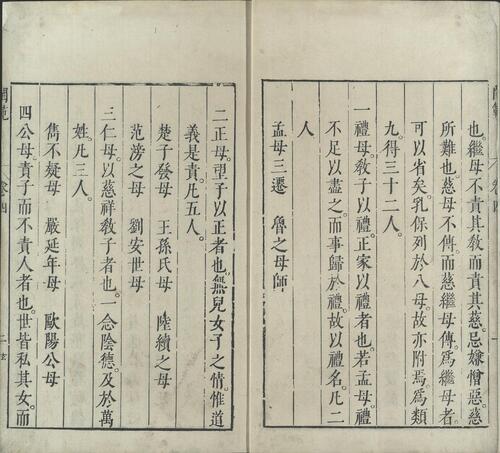 也。繼母不責其敎而責其慈。忌嫌憎惡。慈
所難也。慈母不傳。而慈繼母傳。爲繼母者。
可以省矣。乳保列於八母。故亦附焉。爲類
九。得三十二人。
一禮母。敎子以禮正家以禮者也。若孟母禮
不足以盡之。而事歸於禮。故以禮名。凡二
人
孟母三遷　魯之母師
二正母。望子以正者也。無兒女子之情。惟道
義是責。凡五人。
楚子發母　王孫氏母　陸續之母
范滂之母　劉安世母
三仁母。以慈祥敎子者也。一念陰德。及於萬
姓。凡三人。
雋不疑母　嚴延年母　歐陽公母
四公母。責子而不責人者也。世皆私其女。而
閨範
卷四
二